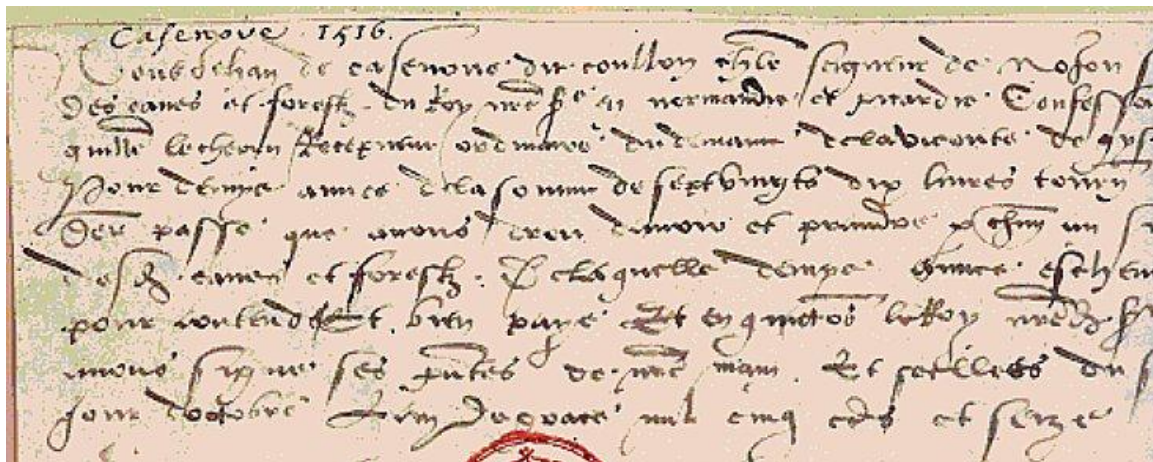 Casenove 1516.
Nous Jehan de casenove dit coullon chlr seigneur de
des eaues et forestz du Roy nre sr en normandie et picardie Confess
Receveur ordinaire du demaine dela viconte de
pour demye annee dela somme de sept vingts dix livres tourn
der passe que avons droit davoir et prendre chun an
desd eaues et forestz. De laquelle demye annee
pour content et bien paye Et en quictons le Roy nred sr
avons signe ces pntes de nre main. Et scellees du
jour doctobre Lan de grace mil cinq cens et seize